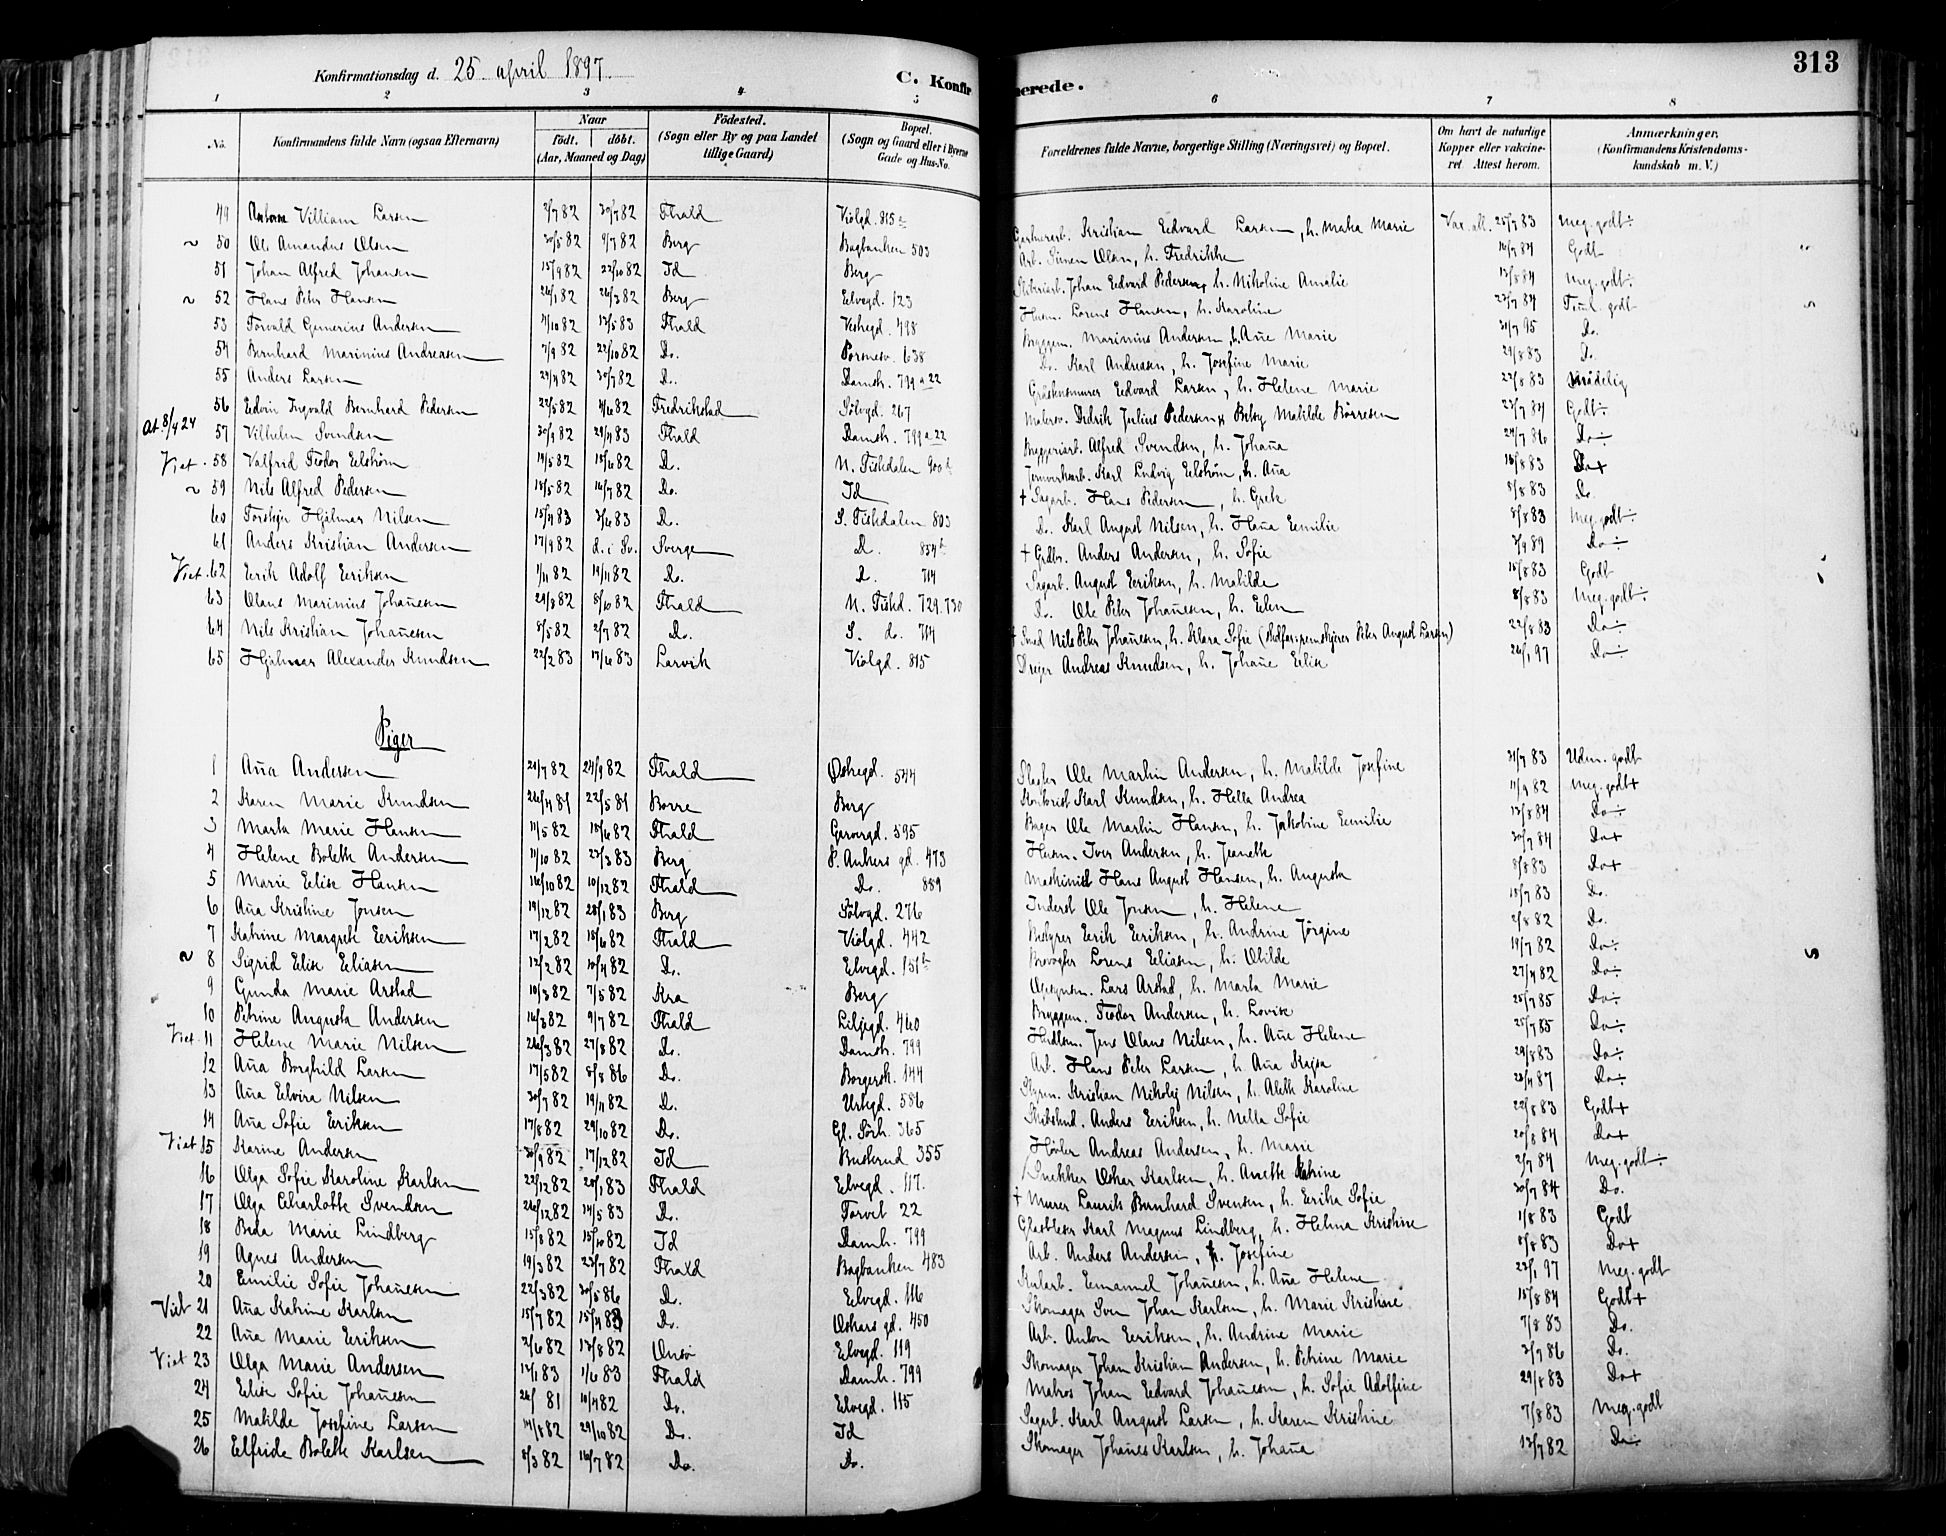 313
Konfirmationsdag d. 25. april 1897.
C. Konfirmerede.
1 2 3 4 5 6 7 8
No. Konfirmandens fulde Navn (ogsaa Efternavn) Naar født. døbt. (Aar, Maaned og Dag) Fødested. (Sogn eller By og paa Landet tillige Gaard) Bopæl. (Sogn og Gaard eller i Byerne Gade og Hus-No. Forældrenes fulde Navne, borgerlige Stilling (Næringsvei) og Bopæl. Om havt de naturlige Kopper eller vakcineret. Attest herom. Anmærkninger. (Konfirmandens Kristendomskundskab m. V.)
49 Villiam Larsen 2/7 82 30/7 82 Fhald Violgd. 815 Kristian Edvard Larsen, h. Marie Vac. att. 25/7 83 Meg. godt ÷
50 Ole Amandus Olsen 30/5 82 9/7 82 Berg Bagbanken 503 Arb. Simen Olsen, h. Fredrikke 10/7 84 Godt
51 Johan Alfred Johansen 15/9 82 22/10 82 Id Berg Johan Edvard Pedersen, h. Nikoline Amalie 12/8 84 Meg. godt ÷
52 Hans Peter Hansen 26/1 82 26/3 82 Berg Elvegd. 123 Husm. Lorens Hansen, h. Karoline 22/7 84 Teml. godt
53 Torvald Gunerius Andersen 4/10 82 13/5 83 Fhald Vestregd. 498 Bryggem. Marinius Andersen, h. Añe Marie 31/7 95 Do.
54 Bernhard Marinius Andreasen 7/9 82 22/10 82 Do. 638 Do. Karl Andreasen, h. Josefine Marie 29/8 83 Do.
55 Anders Larsen 24/4 82 30/7 82 Do. Damstr. 799 a 22 Edvard Larsen, h. Helene Marie 22/8 83 Mådelig
56 Edvin Ingvald Bernhard Pedersen 22/5 82 4/6 82 Fredrikstad Sølvgd. 267 Malersv. Didrik Julius Pedersen & Betsy Matilde Børresen 23/7 84 Godt ÷
At. 8/4 24 57 Vilhelm Svendsen 30/9 82 29/4 83 Fhald Damstr. 799 a 22 Bryggeriarb. Alfred Svendsen, h. Johaña 24/7 86 Do ÷
Viet. 58 Valfrid Teodor Edstrøm 19/5 82 18/6 82 Do. N. Tistedalen 900 Karl Ludvig Edstrøm, h. Aña 16/8 83 Do +
59 Nils Alfred Pedersen 18/5 82 16/7 82 Do. Id † Sagarb. Hans Pedersen, h. Grete 8/8 83 Do
60 Torstein Hjalmar Nilsen 15/4 83 3/6 83 Do. S. Tistedalen 803 Do. Karl August Nilsen, h. Haña Emilie 8/8 83 Meg. godt ÷
61 Anders Kristian Andersen 17/9 82 d. i Sv. Sverge Do. 834 b † Grdbr. Anders Andersen, h. Sofie 3/9 89 Do ÷
Viet. 62 Erik Adolf Eriksen 1/11 82 19/11 82 Do. Do. 714 Sagarb. August Eriksen, h. Matilde 15/8 83 Godt
63 Olaus Marinius Johañesen 29/8 82 8/10 82 Fhald N. Tistd. 729.730 Do. Ole Peter Johañesen, h. Elen 8/8 83 Meg. godt ÷
64 Nils Kristian Johañesen 8/5 82 2/7 82 Do. S. do. 714 † Smed Nils Peter Johañesen, h. Klara Sofie (Stedfar: remskjører Peter August Larsen) 22/8 83 Do ÷
65 Hjalmar Alexander Knudsen 22/2 83 17/6 83 Larvik Violgd. 815 Dreier Andreas Knudsen, h. Johañe Elise 26/1 97 Do ÷
Piger
1 Aña Andersen 21/7 82 24/9 82 Fhald Østregd. 544 Slagter Ole Martin Andersen, h. Matilde Josefine 31/7 83 Udm. godt
2 Karen Marie Knudsen 26/4 81 22/5 81 Borre Berg Kontorist Karl Knudsen, h. Hella Andrea 11/9 82 Meg. godt +
3 Marta Marie Hansen 11/5 82 18/6 82 Fhald Garvergd. 595 Bager Ole Martin Hansen, h. Jakobine Emilie 13/8 84 Do ÷
4 Helene Bolette Andersen 11/10 82 23/3 83 Berg P. Ankers gd. 473 Husm. Iver Andersen, h. Jeanette 30/7 84 Do +
5 Marie Elise Hansen 16/10 82 10/12 82 Fhald Do. 889 Maskinist Hans August Hansen, h. Augusta 8/8 83 Do +
6 Aña Kristine Jonsen 19/12 82 28/1 83 Berg Sølvgd. 276 Inderst Ole Jonsen, h. Helene 18/7 83 Do.
7 Katrine Margrete Eriksen 17/2 82 18/6 82 Fhald Violgd. 442 Bestyrer Erik Eriksen, h. Andrine Jørgine 2/8 82 Do.
8 Sigrid Elise Eliasen 12/2 82 10/4 82 Do. Elvegd. 151 b Brovogter Lorens Eliasen, h. Otilde 19/7 82 Do ÷
9 Gunda Marie Arstad 10/3 82 7/5 82 Kra Berg Lars Arstad, h. Marta Marie 27/4 82 Do ÷
10 Petrine Augusta Andersen 16/3 82 9/7 82 Fhald Liljegd. 460 Bryggem. Teodor Andersen, h. Lovise 25/7 85 Do ÷
Viet. 11 Helene Marie Nilsen 26/3 82 27/8 82 Do. Damstr. 799 Jens Olaus Nilsen, h. Añe Helene 25/7 85 Do ÷
12 Aña Borghild Larsen 17/5 82 8/8 86 Do. Borgerst. 144 Arb. Hans Peter Larsen, h. Aña Kajsa 29/8 83 Do ÷
13 Aña Elvira Nilsen 30/7 82 19/11 82 Do. Urtegd. 586 Styrm. Kristian Nikolaj Nilsen, h. Alette Karoline 28/4 87 Do ÷
14 Aña Sofie Eriksen 17/8 82 29/10 82 Do. Gl. Sørh. 365 Anders Eriksen, h. Nella Sofie 22/8 83 Godt +
Viet 15 Karine Andersen 30/9 82 17/12 82 Id Buskerud 355 Høvler Andreas Andersen, h. Marie 20/8 84 Do +
16 Olga Sofie Karoline Karlsen 22/12 82 28/1 83 Fhald Elvegd. 117. Snekker Oskar Karlsen, h. Anette Katrine 2/7 84 Meg. godt ÷
17 Olga Charlotte Svendsen 26/12 82 14/5 83 Do. Torvet 22 † Murer Laurits Bernhard Svensen, h. Erika Sofie 30/7 84 Do.
18 Beda Marie Lindberg 15/8 82 15/10 82 Id Damh. 799 Karl Magnus Lindberg, h. Helma Kristine 1/8 83 Godt
19 Agnes Andersen 19/3 82 23/7 82 Fhald Bagbanken 483 Arb. Anders Andersen, h. Josefine 8/8 83 Do +
20 Emilie Sofie Johañesen 22/3 82 30/5 86 Do. Elvegd. 116 Kularb. Emanuel Johañesen, h. Aña Helene 22/1 97 Meg. godt
Viet 21 Aña Katrine Karlsen 15/7 82 15/4 83 Do. Oskars gd. 450 Skomager Sven Johan Karlsen, h. Marie Kristine 15/8 84 Godt +
22 Aña Marie Eriksen 2/6 82 13/8 82 Onsø Elvegd. 119 Arb. Anton Eriksen, h. Andrine Marie 7/8 83 Do.
Viet 23 Olga Marie Andersen 12/1 83 1/6 83 Fhald Damh. 799 Skomager Johan Kristian Andersen, h. Petrine Marie 2/7 86 Do.
24 Elise Sofie Johañesen 26/ 81 10/4 82 Do. Elvegd. 115 Matros Johan Edvard Johañesen, h. Sofie Adolfine 29/8 83 Do +
25 Matilde Josefine Larsen 14/8 82 29/10 82 Do. Id Sagarb. Karl August Larsen, h. Karen Kristine 7/8 83 Meg. godt
26 Elfride Bolette Karlsen 8/3 82 16/7 82 Do. Do. Skomager Johañes Karlsen, h. Johaña 13/7 82 Do ÷